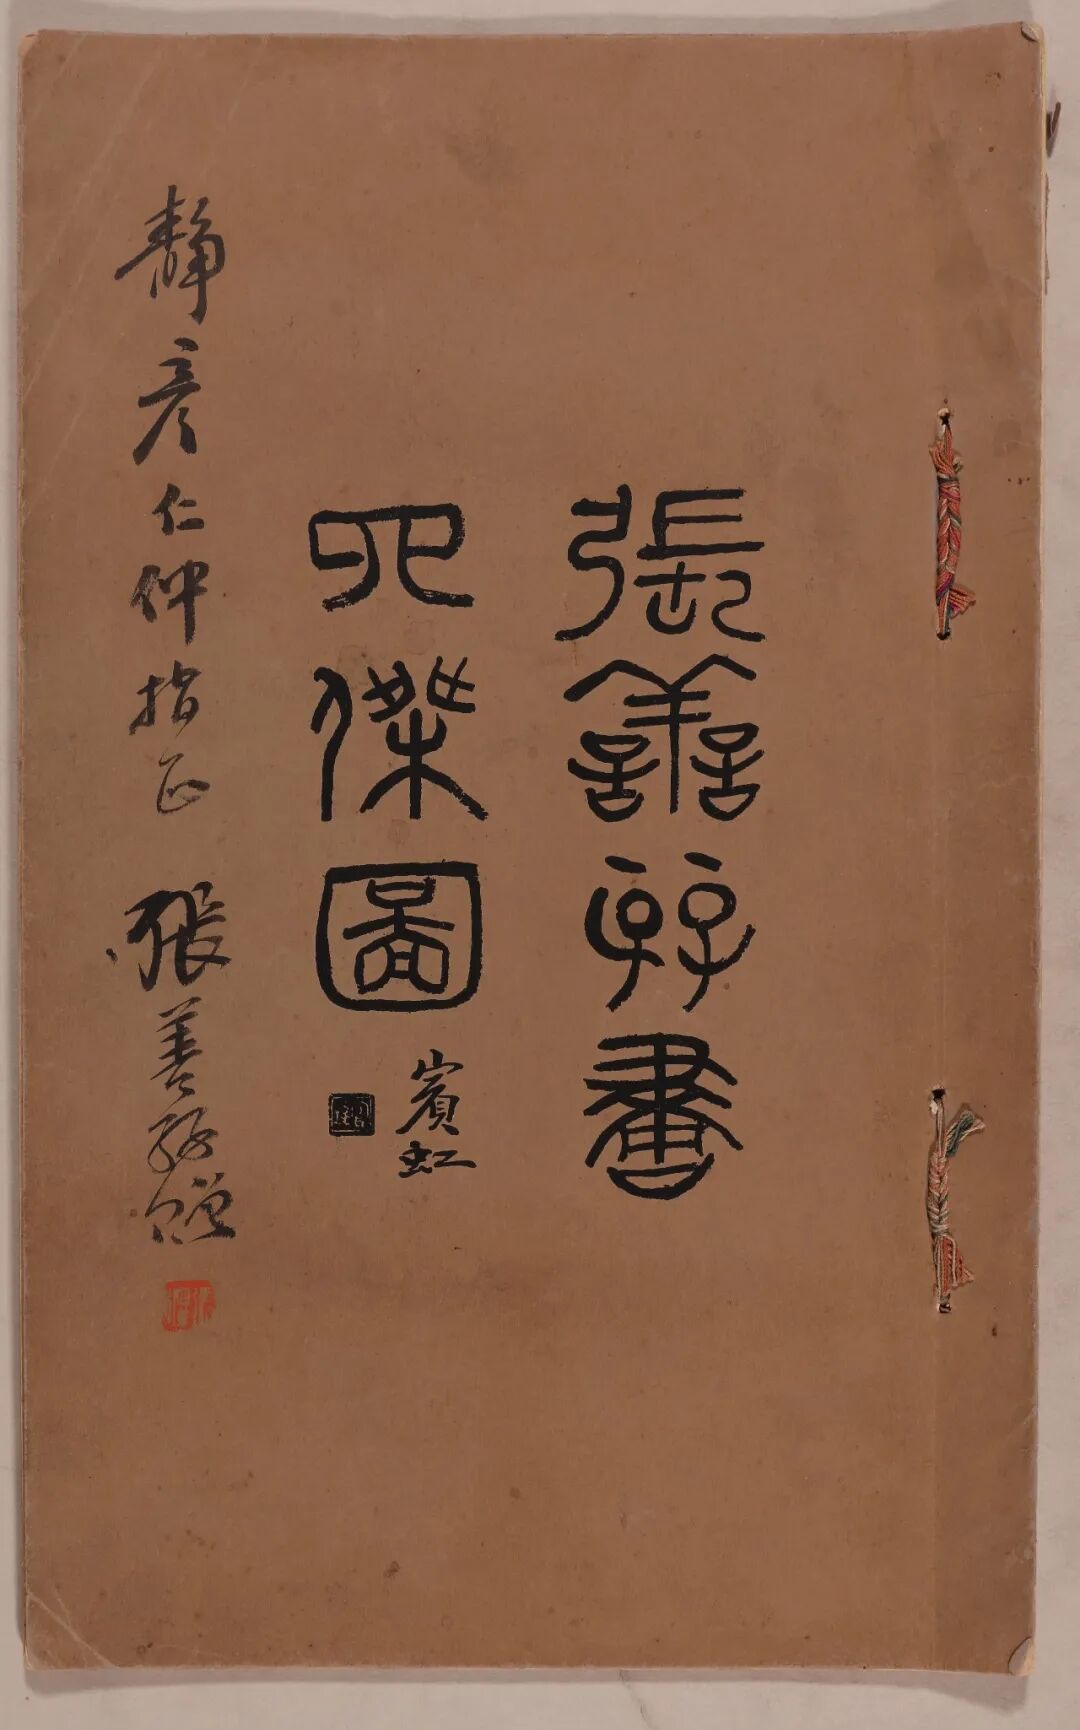 張善孖畫
四傑圖
賓虹
靜彥仁仲指正 張善孖贈